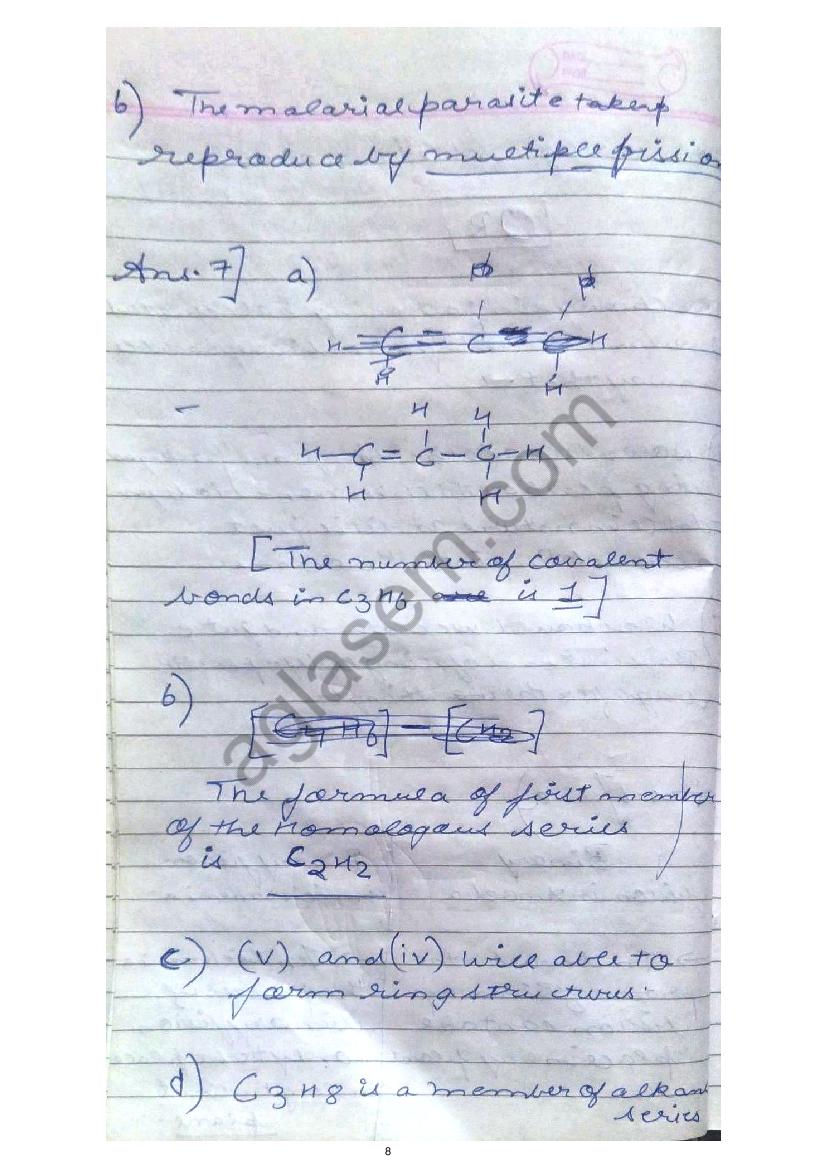 b) The malarial parasite takesp
reproduce by multiple fission
Ans. 7] a)
H C = C C H
H H
H H
H - C = C - C - H
H H
[The number of covalent
bonds in C3H6 are is 1]
b)
[C4H6] - [CH2]
The formula of first member
of the homologous series
is C2H2
c) (v) and (iv) will able to
form ring structures.
d) C3H8 is a member of alkan
series
aglasem.com
8